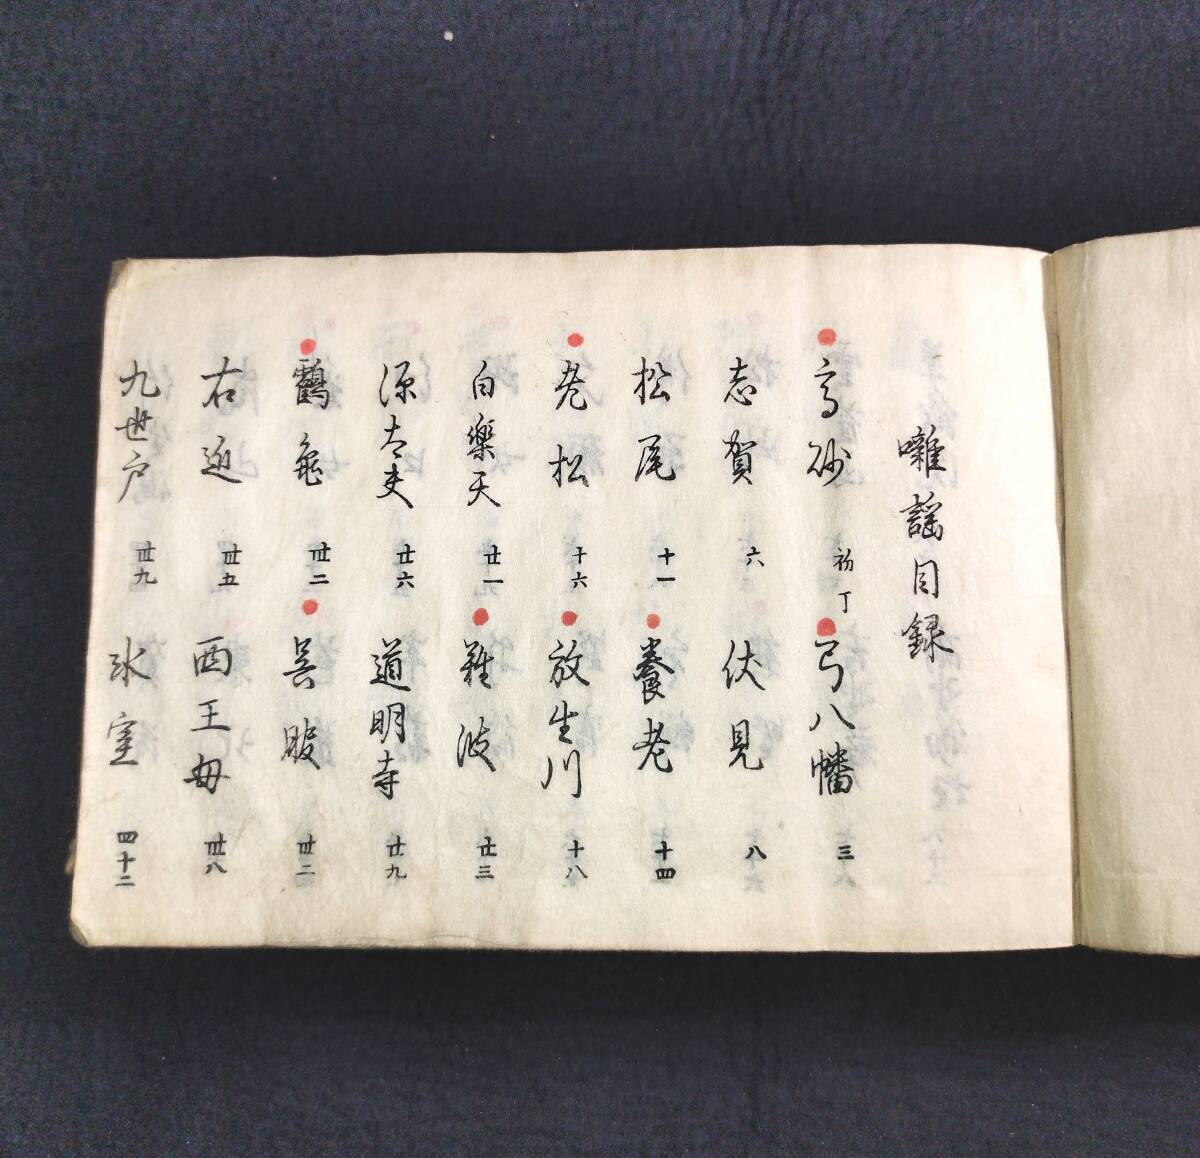 囃謡目録
高砂 初丁 弓八幡 三
志賀 六 伏見 八
松尾 十一 養老 十四
老松 十六 放生川 十八
白楽天 廿一 難波 廿三
源太夫 廿六 道明寺 廿九
鶴亀 卅二 呉服 卅二
右近 卅五 西王母 卅八
九世戸 卅九 氷室 四十二